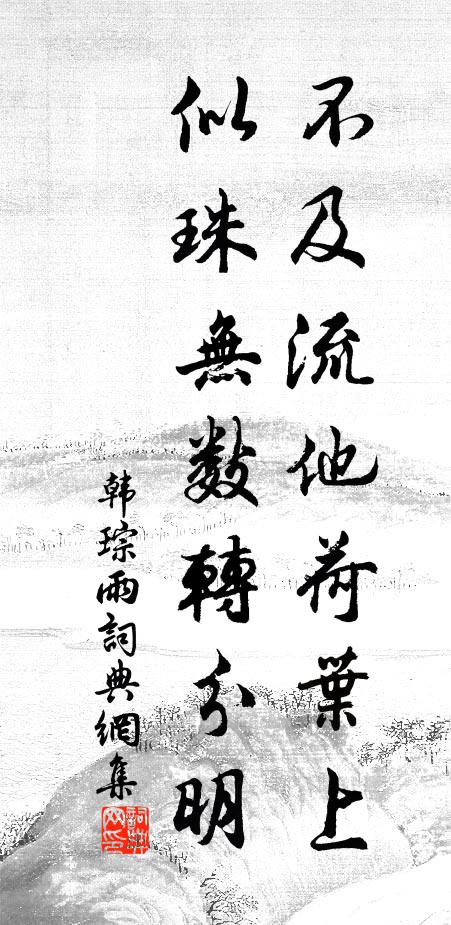 不及流他荷葉上
似珠無数轉分明
韩琮雨詞典網集